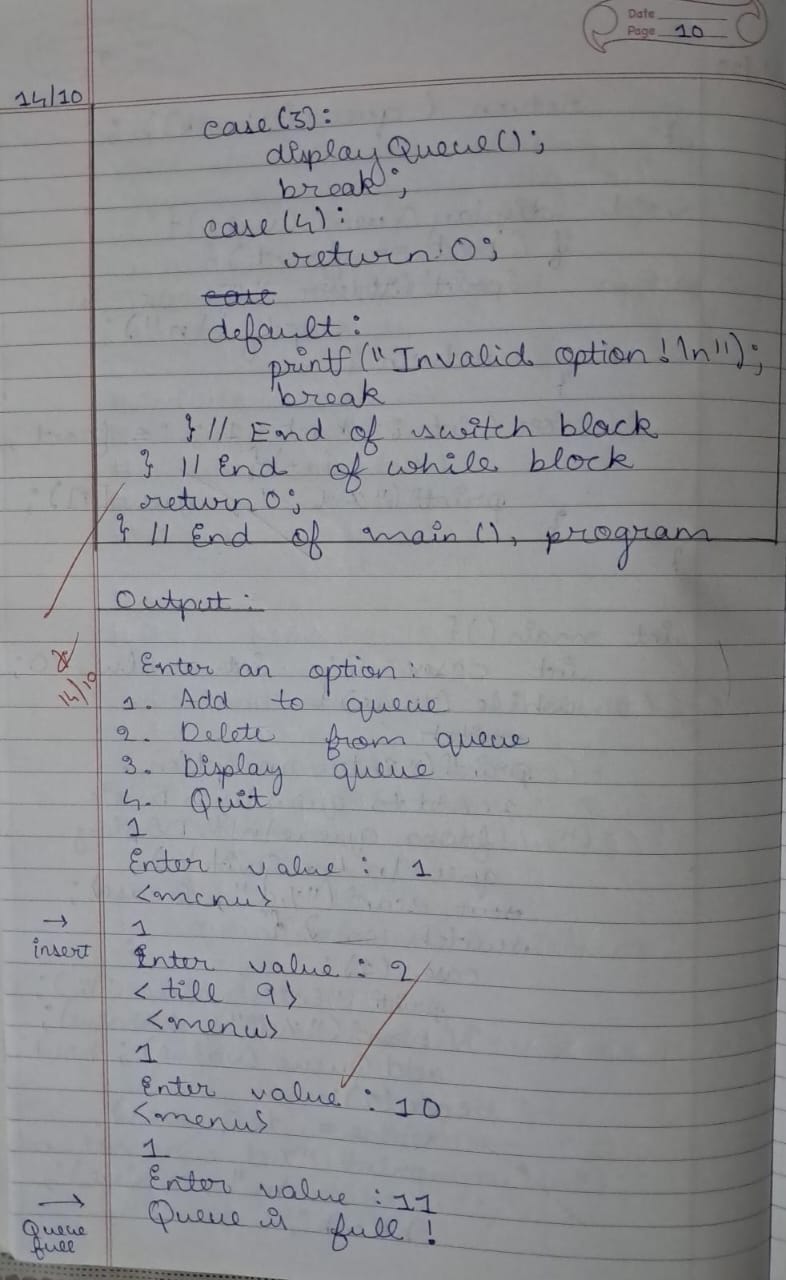 Date
Page 10
14/10
case(3):
displayQueue();
break;
case(4):
return 0;
case
default:
printf("Invalid option!\n");
break
} // End of switch block
} // End of while block
return 0;
} // End of main(), program
Output:
Enter an option:
14/10
1. Add to queue
2. Delete from queue
3. Display queue
4. Quit
1
Enter value : 1
<menu>
→
1
insert
Enter value : 2
< till 9>
<menu>
1
Enter value : 10
<menu>
1
Enter value : 11
→
Queue is full !
Queue
full